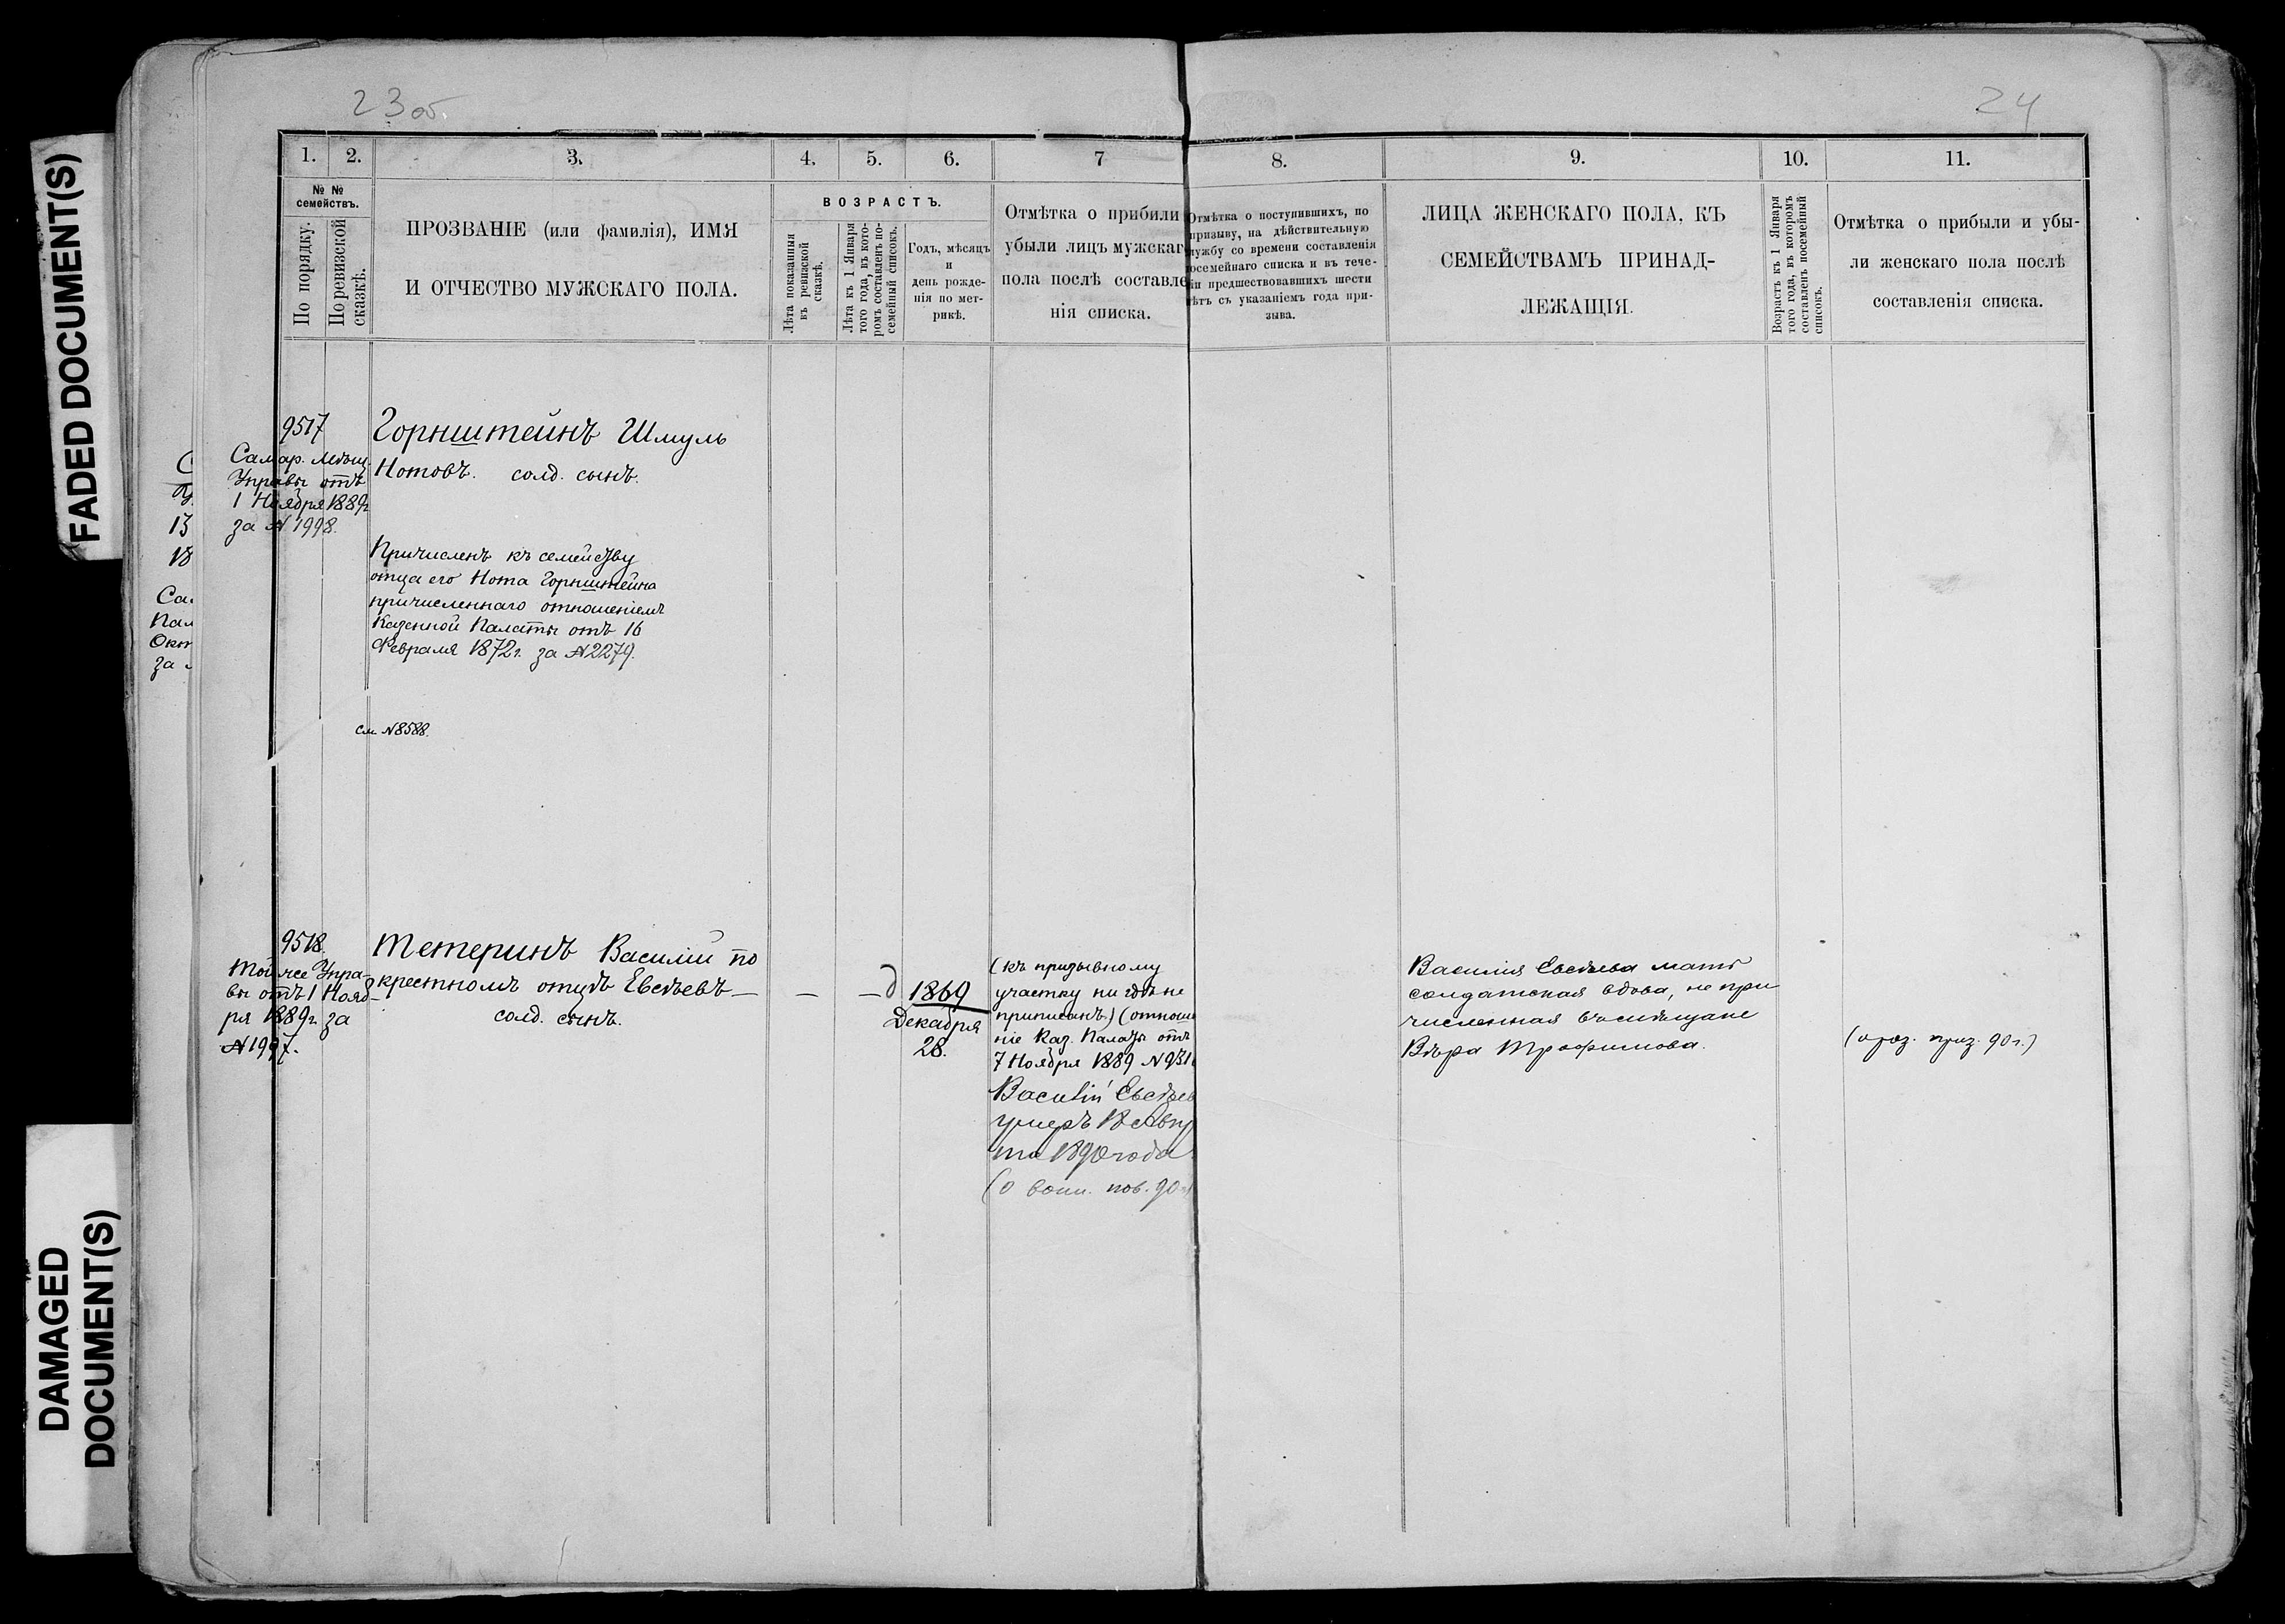 FADED DOCUMENT(S)
DAMAGED
DOCUMENT(S)
23 об
24
1.
2.
3.
4.
5.
6.
7
8.
9.
10.
11.
№ №
семействъ.
По порядку.
По ревизской
сказкѣ.
ПРОЗВАНІЕ (или фамилія), ИМЯ
И ОТЧЕСТВО МУЖСКАГО ПОЛА.
ВОЗРАСТЪ.
Лѣта показанныя
въ ревизской
сказкѣ.
Лѣта къ 1 Января
того года, въ кото-
ромъ составленъ по-
семейный списокъ.
Годъ, мѣсяцъ
и
день рожде-
нія по мет-
рикѣ.
Отмѣтка о прибыли
убыли лицъ мужскаг
пола послѣ составле
нія списка.
Отмѣтка о поступившихъ, по
призыву, на дѣйствительную
лужбу со времени составленія
осемейнаго списка и въ тече-
іи предшествовавшихъ шести
лѣтъ съ указаніемъ года при-
зыва.
ЛИЦА ЖЕНСКАГО ПОЛА, КЪ
СЕМЕЙСТВАМЪ ПРИНАД-
ЛЕЖАЩІЯ.
Возрастъ къ 1 Января
того года, въ которомъ
составленъ посемейный
списокъ.
Отмѣтка о прибыли и убы-
ли женскаго пола послѣ
составленія списка.
9517
Самар. Мѣщ.
Управы отъ
1 Ноября 1889г
за № 1998.
Горнштейнъ Шмуль
Нотовъ. солд. сынъ.
Причисленъ къ семейству
отца его Нота Горнштейна
причисленнаго отношеніемъ
Казенной Палаты отъ 16
Февраля 1872г. за №2279.
см №8588.
13
18
Са
Пал
Окт
за
9518.
Той же Упра-
вы отъ 1 Нояб-
ря 1889г. за
№1997.
Тетеринъ Василій по
крестномъ отцѣ Евсѣевъ —
солд. сынъ.
—
—
1869
Декабря
28.
(къ призывному
участку нигдѣ не
приписанъ.) (отноше
ніе Каз. Палаты отъ
7 Ноября 1889 №931
Василій Евсѣев
умеръ 18 Авгу
та 1890 года
(о воин. пов. 90
Василія Евсѣева мать
солдатская вдова, не при
численная въ мѣщане
Вѣра Трофимова.
90г.)